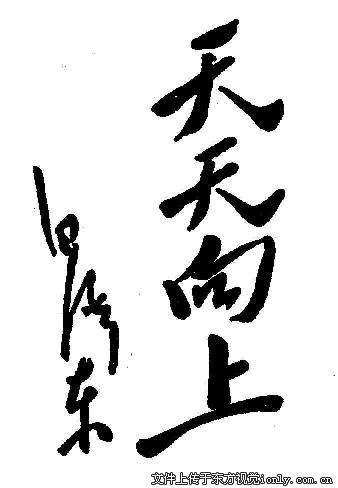 天天向上
毛泽东
文件上传于东方视觉ionly.com.cn